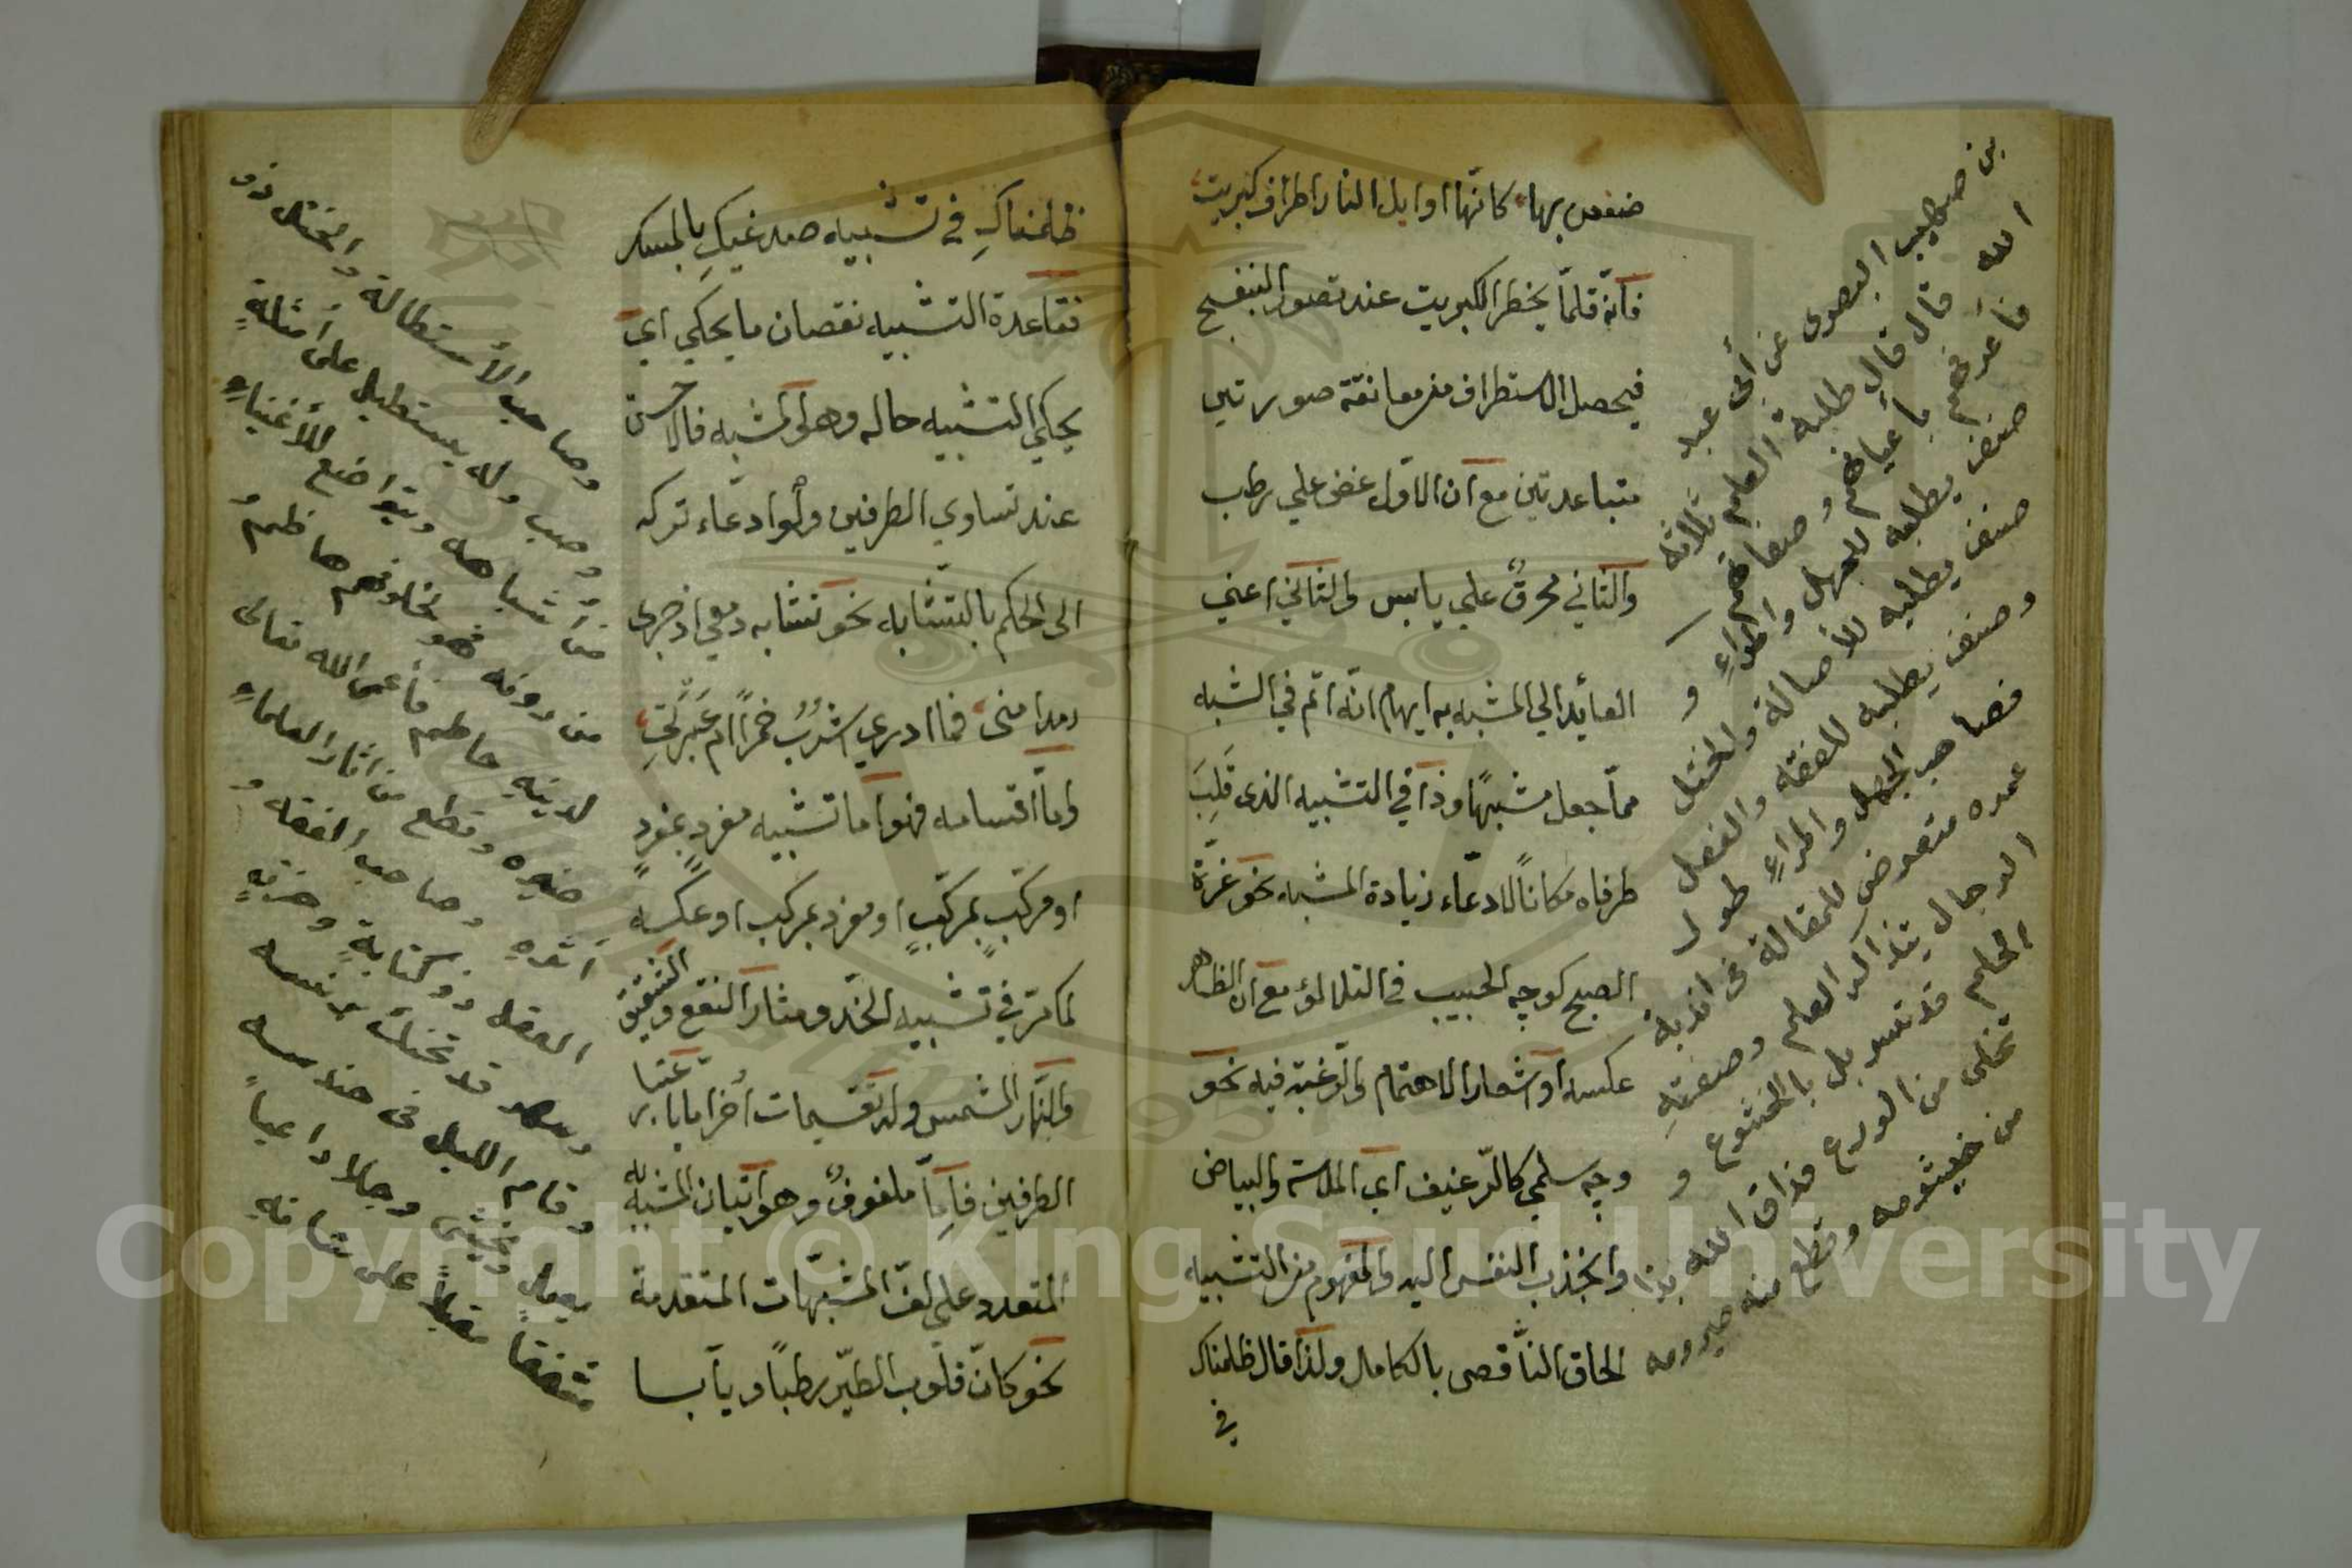 ضعفن بها كانّها اوايل النار اطراف كبريت
فانّه قلمّا يخطر الكبريت عند تصور البنفسج
فيحصل الاستطراف من معانقة صورتين
متباعدتين مع ان الاوّل غض علي رطب
والثاني محرقٌ علي يابس والثاني اعني
العائد الي المشبه به ايهام انّه اتم في الشبه
ممّا جعل مشبهًا وذا في التشبيه الذى قَلِبَ
طرفاه مكانًا لادعاء زيادة المشبه نحو غرّة
الصبح كوجه الحبيب في التلالؤ مع ان الظاهر
عكسه او اشعار الاهتمام والرّغبة فيه نحو
وجه سلمي كالرّغيف اي الملاسة والبياض
وانجذب النفس اليه والمفهوم من التشبيه
الحاق النّاقص بالكامل ولذا قال ظلمناك
في
بن صهيب البصرى عن أبى عبد
الله قال قال طلبة العلم ثلاثه
فأعرفهم بأعيانهم وصفاتهم
صنف يطلبه للجهل والمراءِ و
صنف يطلبه للأستطالة والختل
وصنف يطلبه للفقه والعقل
فصاحب الجهل والمراءِ
متعرض للمقالة فى اندية
الرجال بتذاكر العلم وصفته
الحلم قد تسربل بالخشوع و
تخلى من الورع فدق الله بذا
من خيشومه وقطع منه حيزومه
ظلمناكِ في تشبيه صدغيكِ بالمسك
فقاعدة التشبيه نقصان ما يحكي اي
يحكي التشبيه حاله وهو المشبه فالاحسن
عند تساوي الطرفين ولو ادعاء تركه
الى الحكم بالتشابه نحو تشابه دمعي اذ جرى
ومدامتى فما ادري اشربُ خمرًا ام عَبرَتي
وامّا اقسامه فهو اما تشبيه مفردٍ بمفردٍ
او مركّبٍ بمركّبٍ او مفرد بمركب او عكسه
كما مرّ في تشبيه الخدّ ومثار النقع والشقيق
والنّهار المشمس وله تقسيمات اُخر اما باعتبار
الطرفين فامّا ملفوفٌ وهو اتيان المشبه به
المتعدد علي لفّ المشبّهات المتقدمة
نحو كانّ قلوب الطيّر رطبًا ويابسا
وصاحب الأستطالة والختل ذو
وحب وله يستطيل على أمثاله
من أشباهه ويتواضع للأغنياءِ
من دونه فهو لحلوائهم هاظم و
لدينه حاطم فأعمى الله تعالى
وقطع من اثار العلماءِ
أثره وصاحب الفقه و
العقل ذو كئابةٍ وحزنٍ
وسهر قد تحنك فى برنسه
وقام الليل فى حندسه
يعمل ويخشى وجلا داعياً
مشفقا مقبلاً على شانه